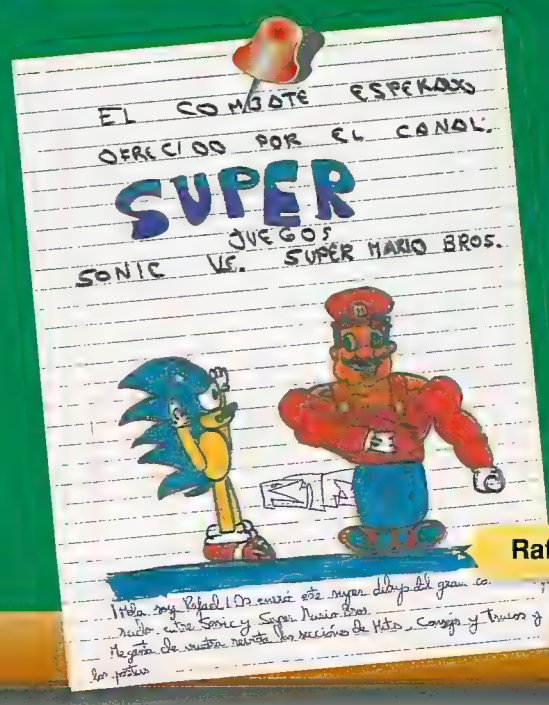 EL COMBATE ESPERADO
OFRECIDO POR EL CANAL.
SUPER
JUEGOS
SONIC VS. SUPER MARIO BROS.
M
Raf
¡Hola soy Rafael! Os envié este super dibujo del gran co
entre Sonic y Super Mario Bros.
Me gusta de vuestra revista las secciones de Hits, Consejos y Trucos y
los posters